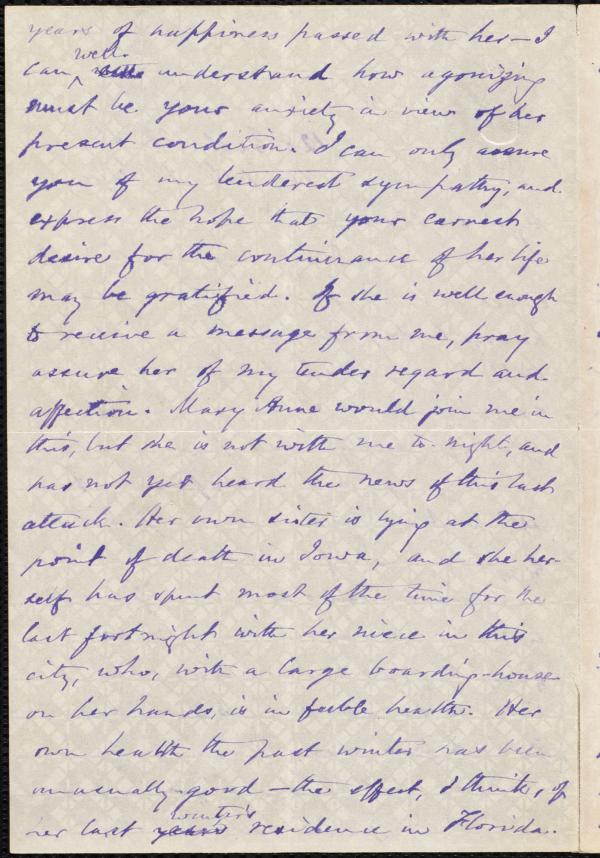 years of happiness passed with her—I
can well understand how agonizing
must be your anxiety in view of her
present condition. I can only assure
you of my tenderest sympathy, and
express the hope that your earnest
desire for the continuance of her life
may be gratified. If she is well enough
to receive a message from me, pray
assure her of my tender regard and
affection. Mary Anne would join me in
this, but she is not with me to-night, and
has not yet heard the news of this last
attack. Her own sister is lying at the
point of death in Iowa, and she her-
self has spent most of the time for the
last fortnight with her niece in this
city, who, with a large boarding-house
on her hands, is in feeble health. Her
own health the past winter has been
unusually good—the effect, I think, of
her last winter's residence in Florida.